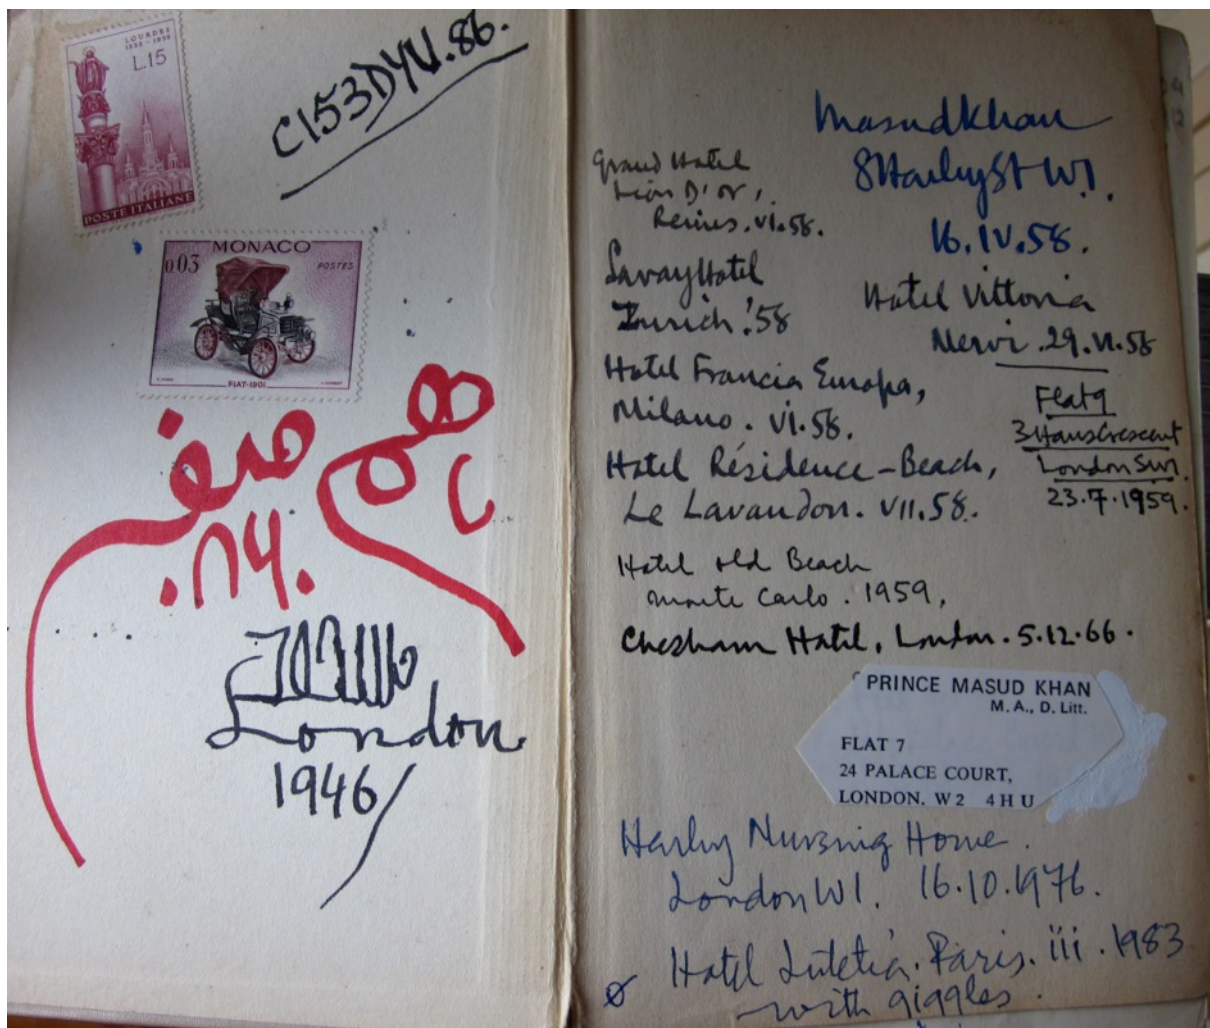 LOURDES
1858-1958
L.15
POSTE ITALIANE
C153DYV.86.
MONACO
0.03
POSTES
FIAT-1901
London
1946
Masud Khan
8 Harley St W1.
16.IV.58.
Grand Hotel
Lion D'or,
Reims. VI.58.
Savoy Hotel
Zurich '58
Hotel Vittoria
Nervi. 29.VI.58
Hotel Francia Europa,
Milano. VI.58.
Flat 9
3 Hans Crescent
London SW1.
23.7.1959.
Hotel Résidence-Beach,
Le Lavandou. VII.58.
Hotel old Beach
Monte Carlo. 1959,
Chesham Hotel, London. 5.12.66.
PRINCE MASUD KHAN
M. A., D. Litt.
FLAT 7
24 PALACE COURT,
LONDON. W2 4HU
Harley Nursing Home.
London W1. 16.10.1976.
Hotel Lutetia. Paris. iii. 1983
with giggles.